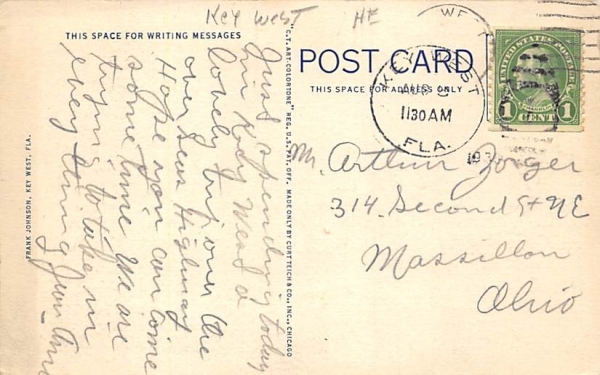 Key West HE
THIS SPACE FOR WRITING MESSAGES
Just spending today
in Key West a
lovely trip over the
over Seas Highway
Hope you can come
some time We are
trying to take in
every thing
FRANK JOHNSON, KEY WEST, FLA.
"C.T. ART-COLORTONE" REG. U.S. PAT. OFF. MADE ONLY BY CURT TEICH & CO., INC., CHICAGO
POST CARD
THIS SPACE FOR ADDRESS ONLY
KEY WEST
1130 AM
FLA.
UNITED STATES POSTAGE
FRANKLIN
1 CENT 1
Mr. Arthur Zorger
314 Second St NE
Massillon
Ohio